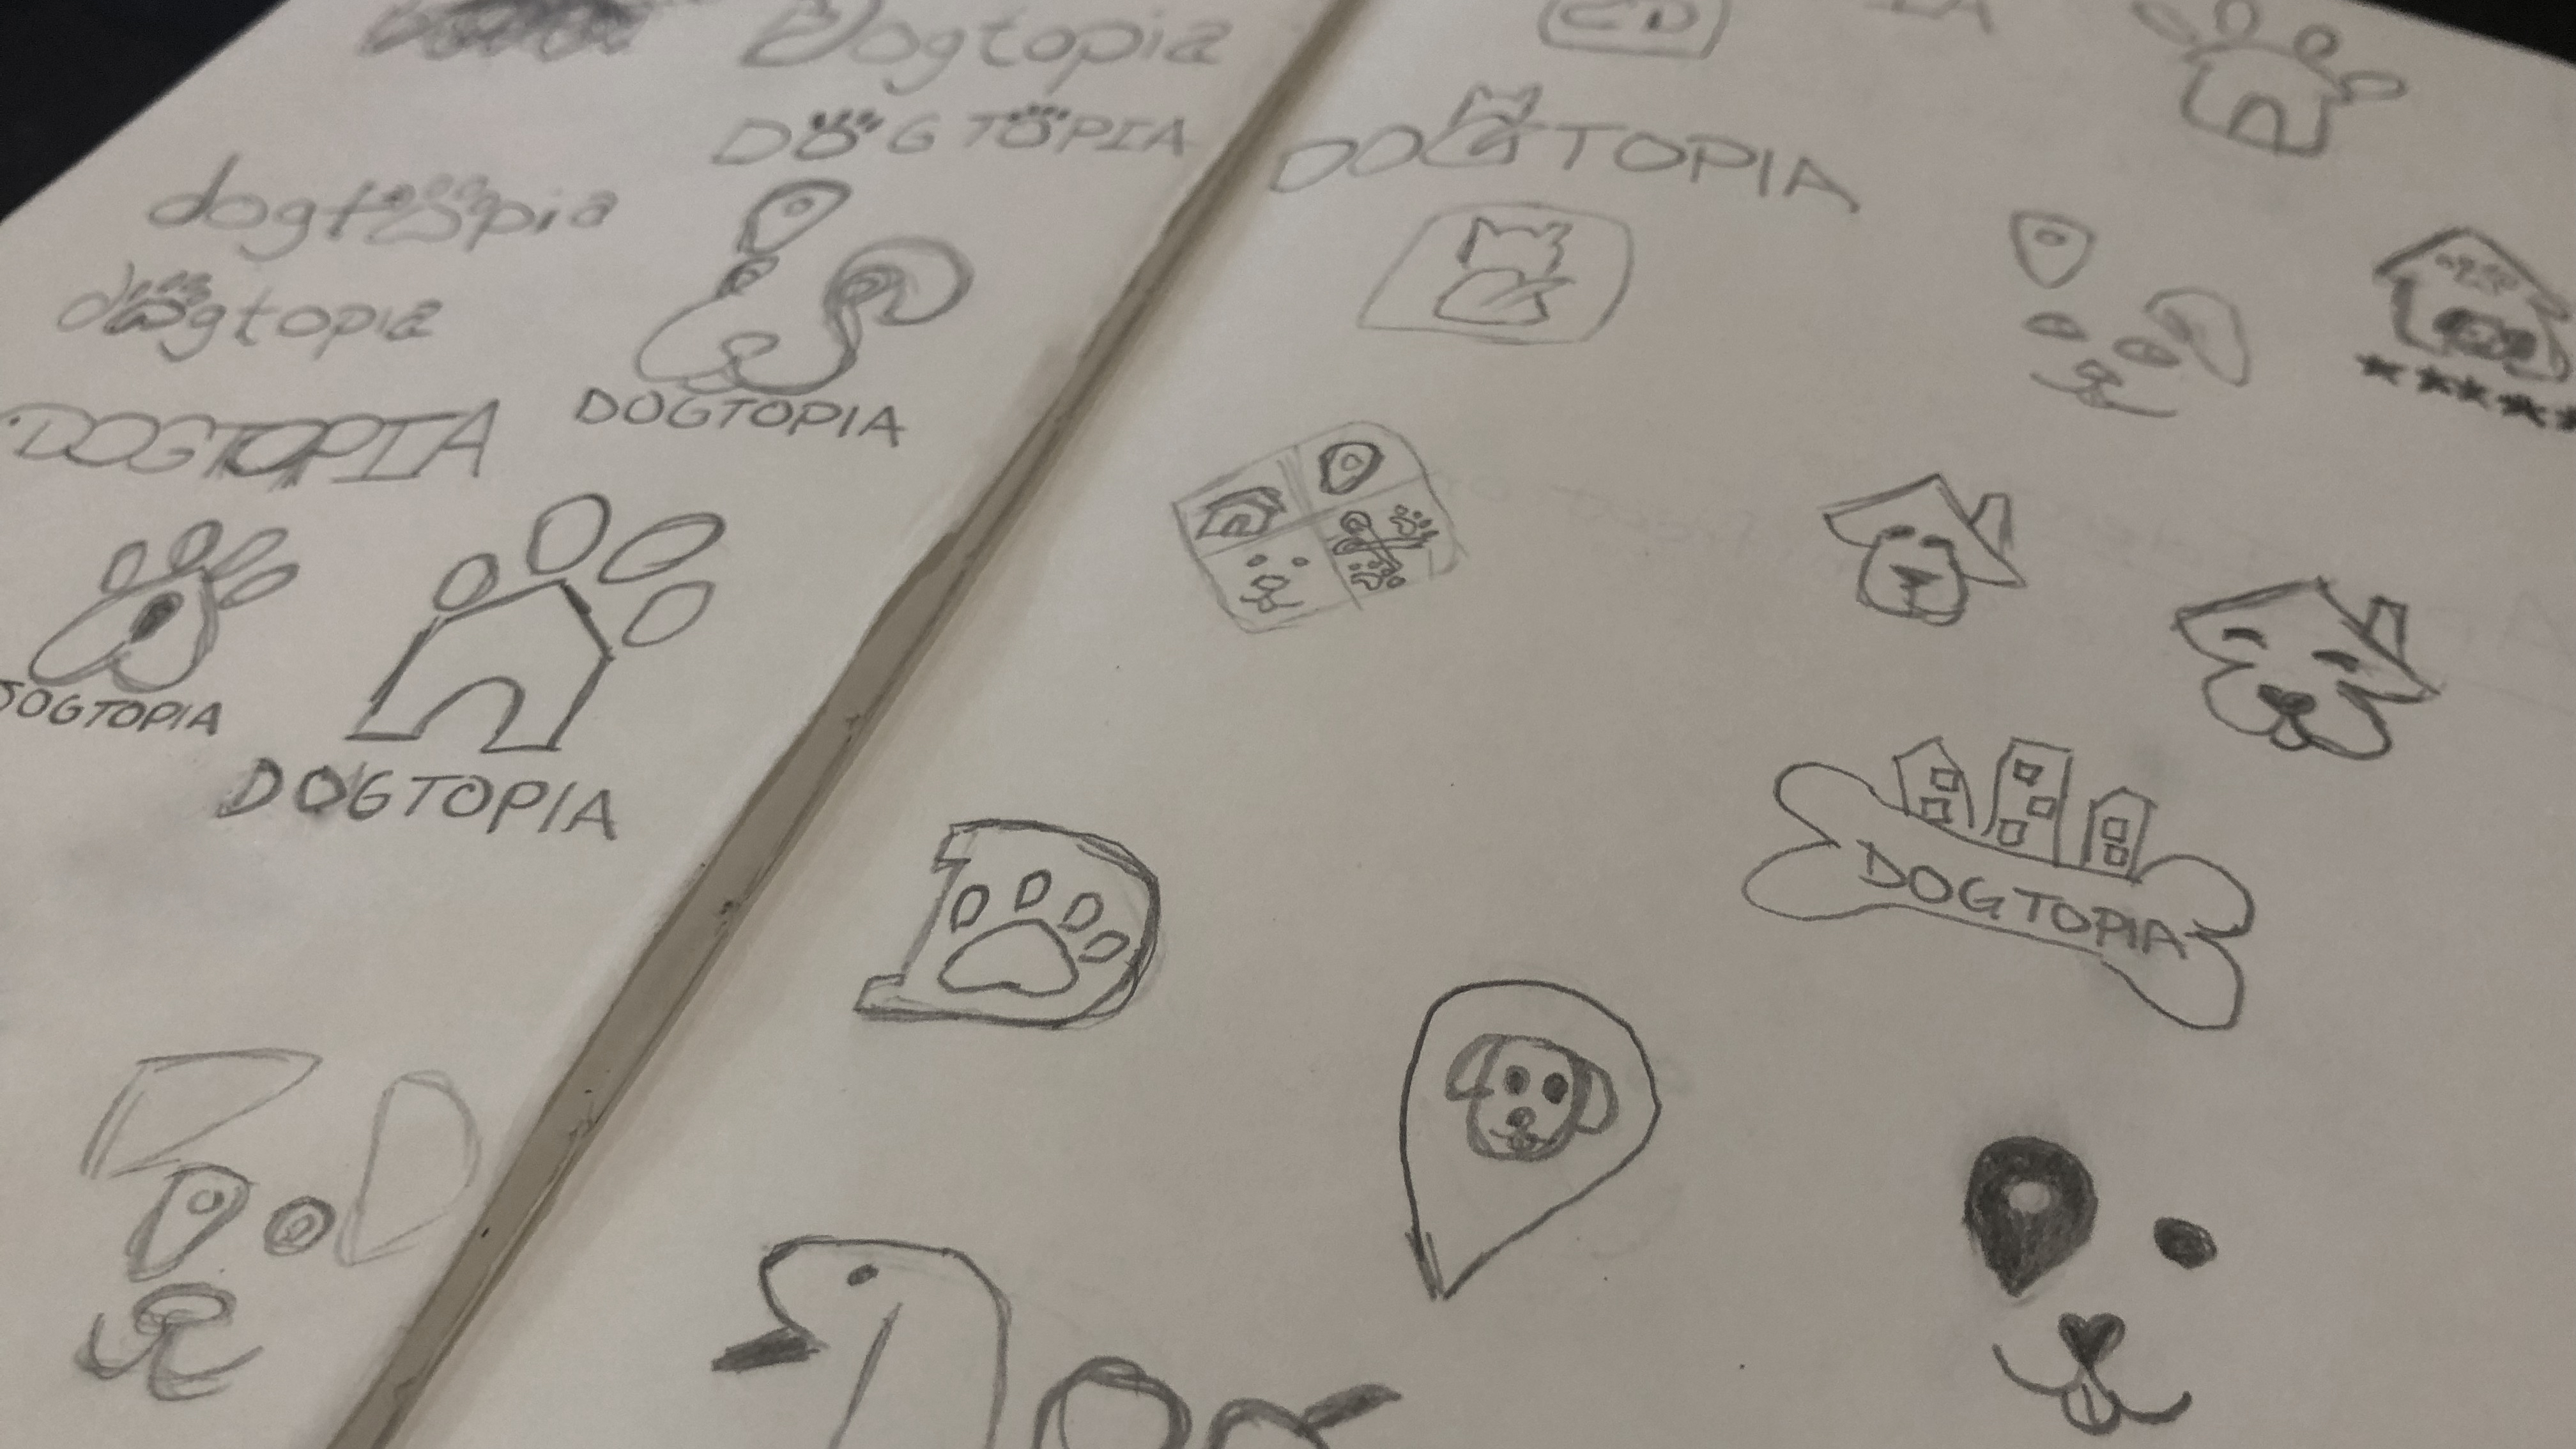 Dogtopia
DOGTOPIA
dogtopia
dogtopia
DOGTOPIA
DOGTOPIA
DOGTOPIA
DOGTOPIA
D
DOGTOPIA
D
DOGTOPIA